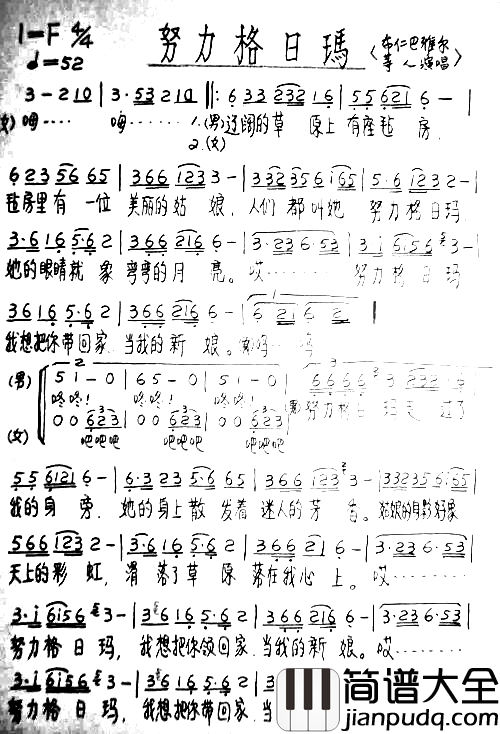 1=F 4/4
♩=52
努力格日瑪
(布仁巴雅尔 等 演唱)
3 - 2 1 0 | 3· 5 3 2 1 0 ‖: 6 3 3 2 3 2 1 6 | 5 5 6 2 1 6 - |
(女) 嗨…… 嗨…… 1.(男)辽阔的草 原上 有座毡 房,
2.(女)
6 2 3 5 6 6 5 | 3 6 6 1 2 3 3 - | 3 3 2 3 5 6 i 6 5 | 5· 6 1 2 3 2 - |
毡房里有 一位 美丽的姑 娘, 人们 都叫她 努力格日玛,
3· 6 1 6 5· 6 2 | 3 6 6 2 1 6 6 - | 3· 2 3 6· 5 3 | 3 i 6 i 5 6 3 - |
她的眼睛就 象 弯弯的月 亮。哎…… 努力格 日玛
3 6 1 6 5· 6 2 | 3 6 6 2 1 6 6 - | 6 2 1 6 2 |
我想把你带回家, 当我的新 娘。
(男) 5 1 - 0 | 6 5 - 0 | 5 1 - 0 | 6 6 6 6 3 3 2 3 2
咚咚! 咚咚! 咚咚! 努力格日 玛走 过了
(女) 0 0 6 2 3 | 0 0 6 2 3 | 0 0 6 2 3
吧吧吧 吧吧吧 吧吧吧
5 5 6 1 2 1 6 - | 6· 3 2 3 5 5 6 5 | 3 6 6 1 2 3 3 - | 3 3 2 3 5 6 i 6 5 |
我的身 旁, 她的身上散 发着 迷人的芳 香。姑娘的身影好象
5 6 6 1 2 3 2 - | 3· 6 1 6 5· 6 2 | 3 6 6 2 1 6 - | 3· 2 3 6· 5 3 |
天上的彩 虹, 滑落了草 原 落在我心 上。哎……
3· i 6 i 5 6 3 - | 3 6 1 6 5· 6 2 | 3 6 6 2 1 6 6 - | 3· 2 3 6· 5 3 |
努力格 日 玛, 我想把你领回家, 当我的新 娘。哎……
3· i 6 i 5 6 3 - | 3 6 1 6 5· 6 2 |
努力格 日 玛, 我想把你带回家, 当
简谱大全
jianpudq.com